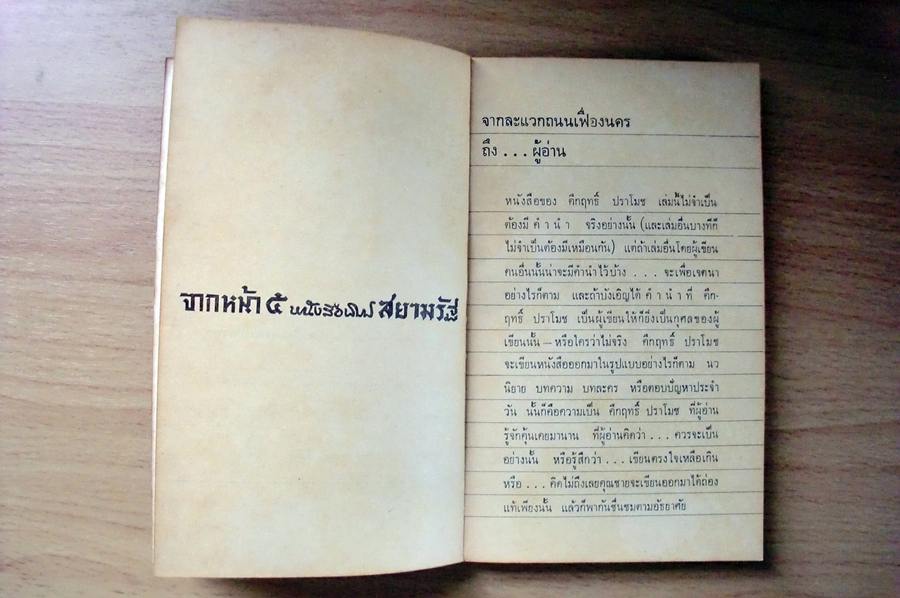 จากหน้า ๕ หนังสือพิมพ์ สยามรัฐ
จากละแวกถนนเฟื่องนคร
ถึง . . . ผู้อ่าน
หนังสือของ คึกฤทธิ์ ปราโมช เล่มนี้ไม่จำเป็น
ต้องมี คำ นำ จริงอย่างนั้น (และเล่มอื่นบางทีก็
ไม่จำเป็นต้องมีเหมือนกัน) แต่ถ้าเล่มอื่นโดยผู้เขียน
คนอื่นนั้นน่าจะมีคำนำไว้บ้าง . . . จะเพื่อเจตนา
อย่างไรก็ตาม และถ้าบังเอิญได้ คำ นำ ที่ คึก-
ฤทธิ์ ปราโมช เป็นผู้เขียนให้ก็ยิ่งเป็นกุศลของผู้
เขียนนั้น — หรือใครว่าไม่จริง คึกฤทธิ์ ปราโมช
จะเขียนหนังสือออกมาในรูปแบบอย่างไรก็ตาม นว
นิยาย บทความ บทละคร หรือตอบปัญหาประจำ
วัน นั้นก็คือความเป็น คึกฤทธิ์ ปราโมช ที่ผู้อ่าน
รู้จักคุ้นเคยมานาน ที่ผู้อ่านคิดว่า . . . ควรจะเป็น
อย่างนั้น หรือรู้สึกว่า . . . เขียนตรงใจเหลือเกิน
หรือ . . . คิดไม่ถึงเลยคุณชายจะเขียนออกมาได้ถ่อง
แท้เพียงนั้น แล้วก็พากันชื่นชมตามอัธยาศัย